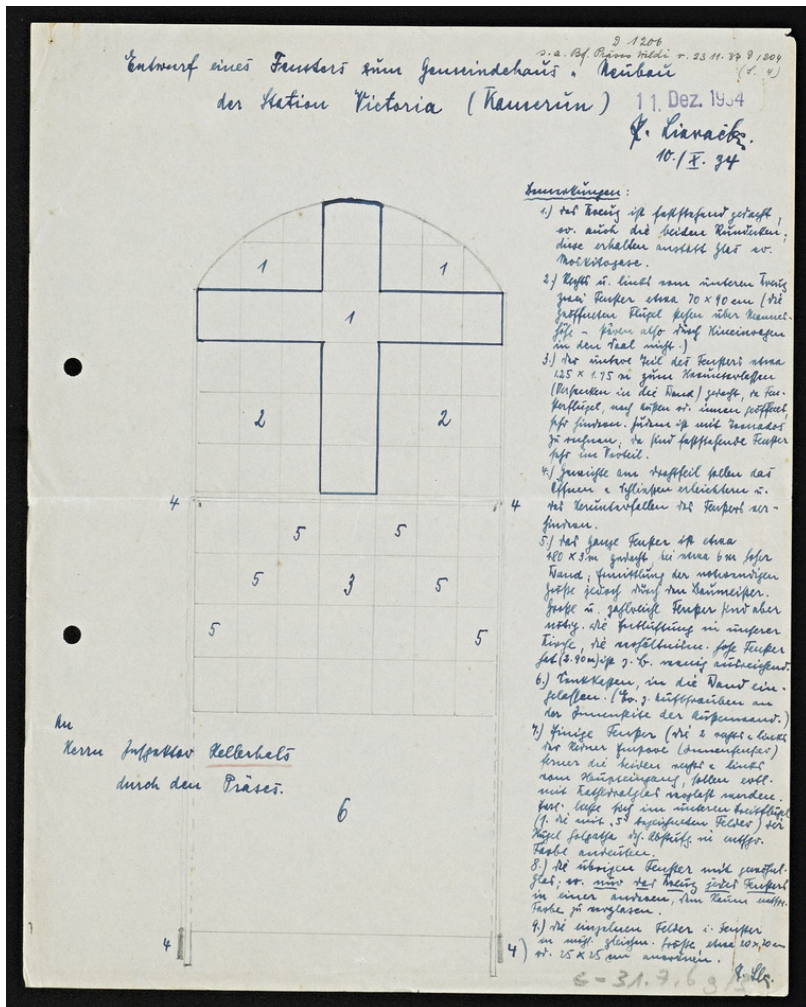 D 1206
s. a. Bf. Präses Wildi v. 23.11.34 D 1204
(S. 4)
Entwurf eines Fensters zum Gemeindehaus-Neubau
der Station Victoria (Kamerun)
11. Dez. 1934
10./X. 34
Bemerkungen:
1.) Das Kreuz ist feststehend gedacht,
ev. auch die beiden Rundecken;
diese erhalten anstatt Glas ev.
Moskitogase.
2.) Rechts u. links vom unteren Kreuz
zwei Fenster etwa 70 x 90 cm (die
geöffneten Flügel stehen über Mannes-
höhe – stören also durch Hineinragen
in den Saal nicht.)
3.) Der untere Teil des Fensters etwa
1.25 x 1.75 m zum Herunterlassen
(Versenken in die Wand) gedacht, da Fen-
sterflügel, nach außen od. innen geöffnet,
sehr hindern. Zudem ist mit Tornados
zu rechnen, da sind feststehende Fenster
sehr im Vorteil.
4.) Gewichte am Drahtseil sollen das
Öffnen u. Schließen erleichtern u.
das Herunterfallen des Fensters ver-
hindern.
5.) Das ganze Fenster ist etwa
180 x 3 m gedacht bei etwa 6 m hoher
Wand; Ermittlung der notwendigen
Größe jedoch durch den Baumeister.
Große u. zahlreiche Fenster sind aber
nötig. Die Entlüftung in unserer
Kirche, die verhältnism. hohe Fenster
hat (2.90 m) ist z. B. wenig ausreichend.
6.) Senkkasten, in die Wand ein-
gelassen. (Ev. z. Aufschrauben an
der Innenseite der Außenwand.)
7.) Einige Fenster (die 2 rechts u. links
der Empore
ferner die beiden rechts u. links
vom Haupteingang, sollen evtl.
mit Kathedralglas verglast werden.
ließe sich im unteren
(z. die mit "5" bezeichneten Felder) der
Hügel Golgatha in entspr.
Farbe andeuten.
8.) Die übrigen Fenster mit
glas; ev. nur das Kreuz jedes Fensters
in einer anderen, dem Raum entspr.
Farbe zu verglasen.
9.) Die einzelnen Felder i. Fenster
in mögl. gleicher Größe, etwa 20x20 cm
od. 25 x 25 cm anordnen.
1 1
1
2 2
4 4
5 5
5 3 5
5 5
An
Herrn Inspektor Kellerhals
durch den Präses.
6
4 4)